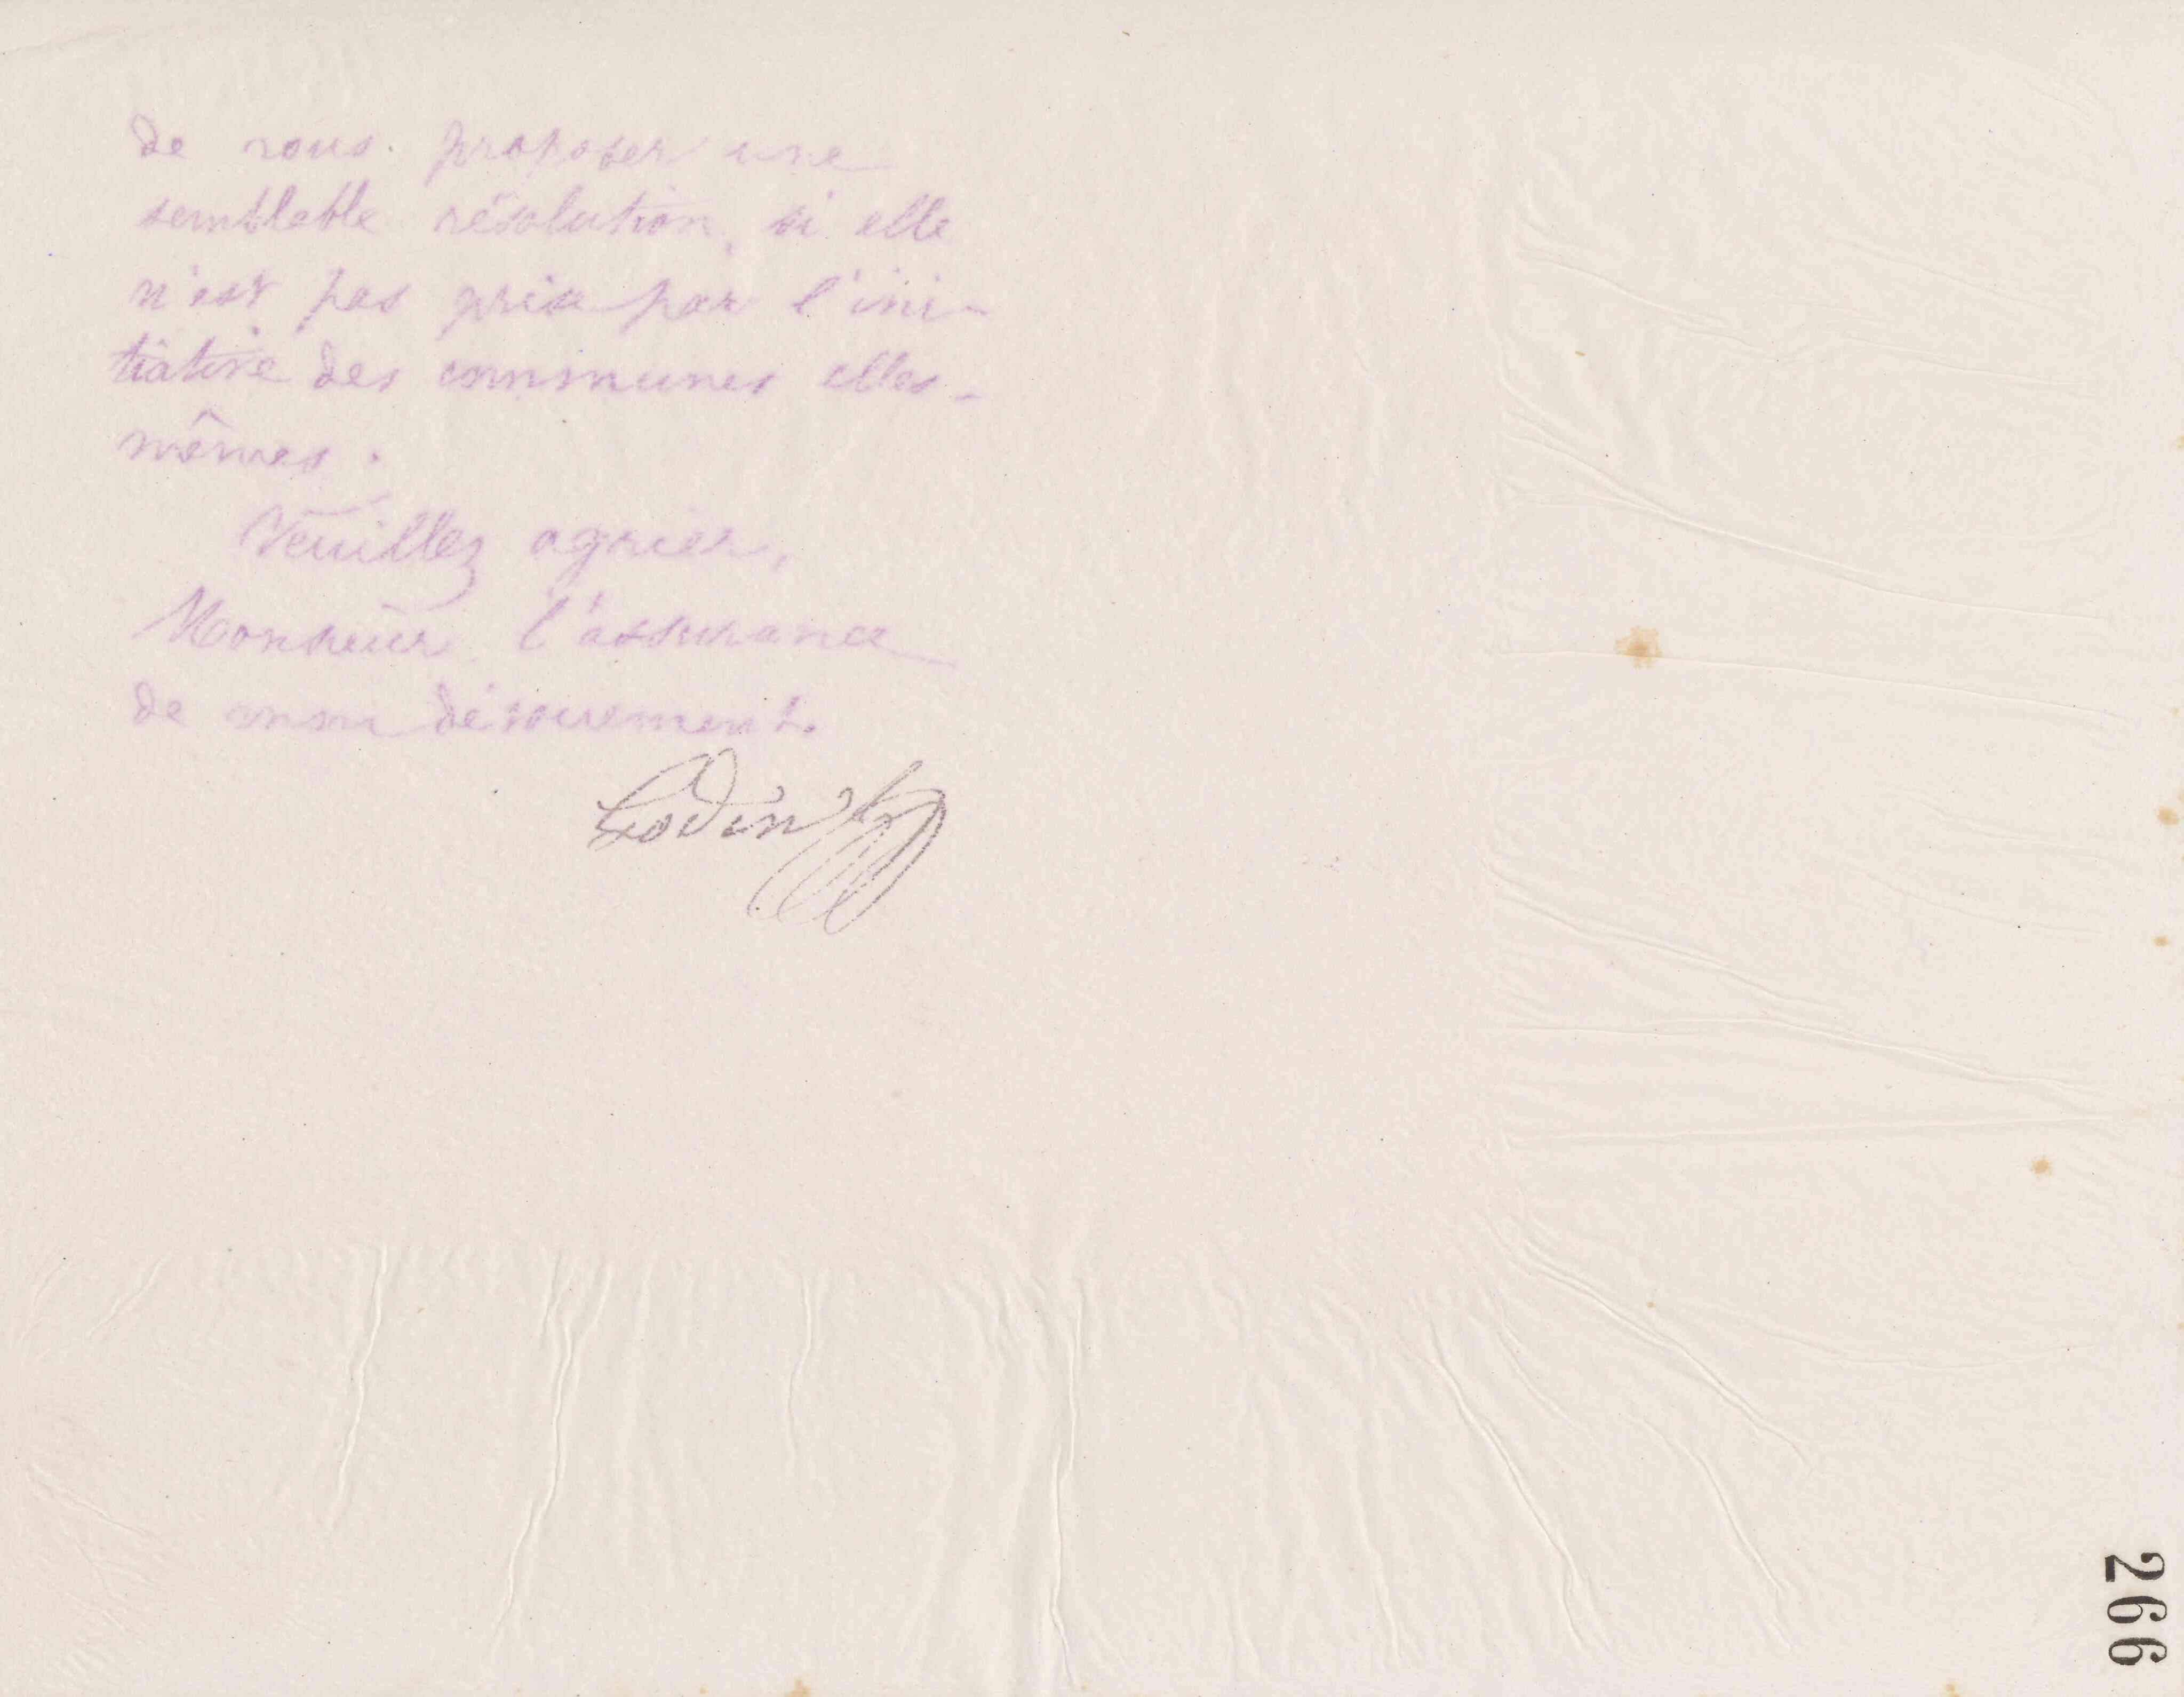 de vous proposer une
semblable résolution, si elle
n'est pas prise par l'ini-
tiative des communes elles-
mêmes.
Veuillez agréer,
Monsieur, l'assurance
de mon dévouement.
Godin
266